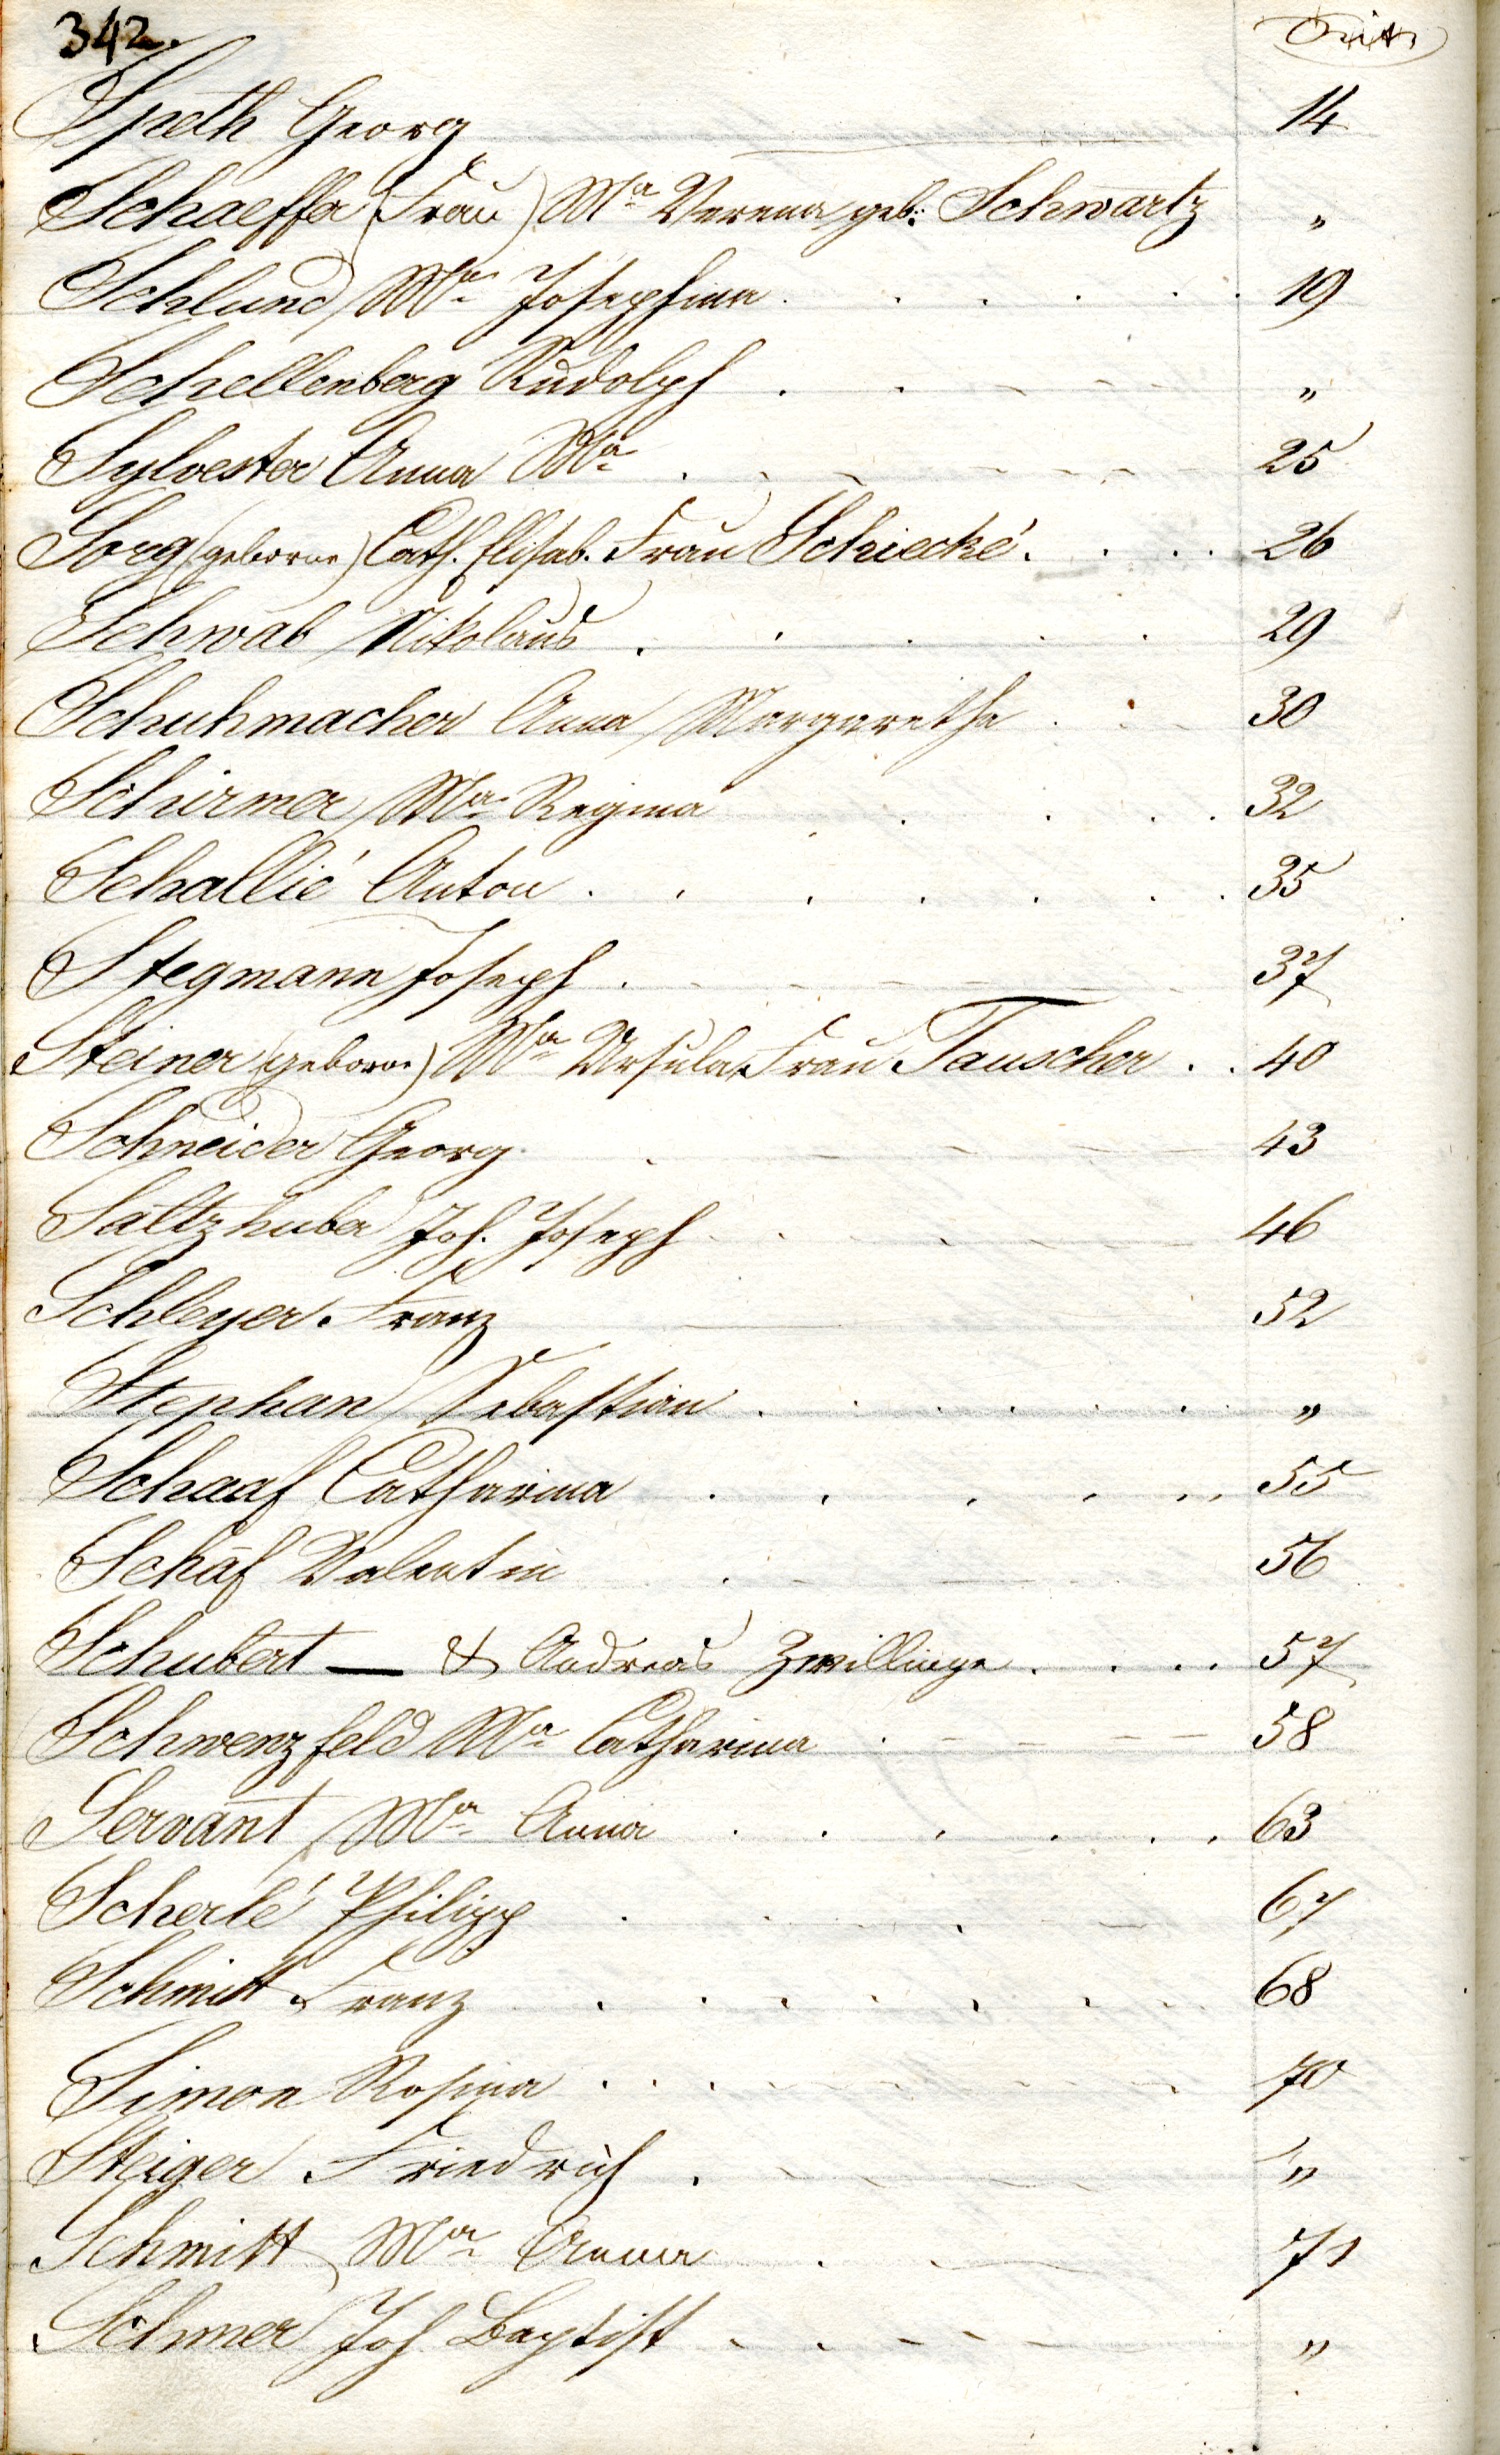 342. Seite
Speth Georg 14
Schaeffer (Frau) Mª Verena geb: Schwartz "
Schlund Mª Josephina . . . . . . 19
Schellenberg Rudolph . . - - - "
Sylvester Anna Mª . . - - - - 25
Sorg (geborne) Cath. Elisab. Frau Schiecké . . . . 26
Schwab Nikolaus . . . . . 29
Schuhmacher Anna Margaretha . . . 30
Schirmer Mª Regina . . . . . 32
Schallié Anton . . . . . . . 35
Stegmann Joseph . - - - - 37
Steiner (geborne) Mª Ursula Frau Tauscher . . 40
Schneider Georg . - - - 43
Saltzhuber Joh. Joseph . . - - - 46
Schleyer Franz 52
Stephan Sebastian . . . . . . . "
Schaaf Catharina . . . . . . 55
Schäf Valentin . - - 56
Schubert — & Andreas Zwillinge . . . . . 57
Schwenzfeld Mª Catharina . - - - - 58
Servant Mª Anna . . . . . . 63
Scherlé Philipp . . . - 67
Schmitt Franz . . . . . . . 68
Simon Rosina . . . . . - - - 70
Steiger Friedrich . - - - - "
Schmitt Mª Anna . . 71
Schmer Joh Baptist - . - - - "